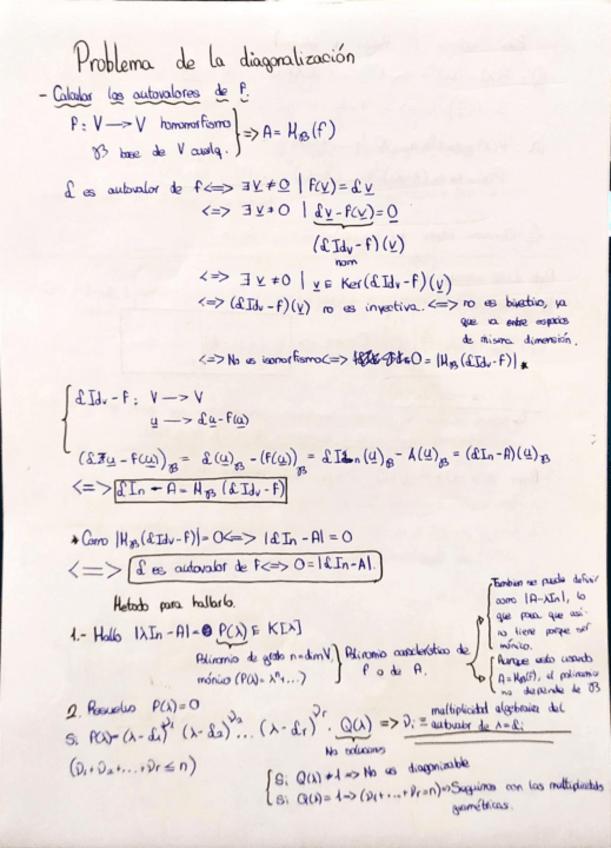 Problema de la diagonalización
- Calcular los autovalores de f.
f: V → V homomorfismo
B base de V cualq. } => A = M_B(f)
α es autovalor de f <=> ∃ v ≠ 0 | f(v) = αv
<=> ∃ v ≠ 0 | αv - f(v) = 0
(αId_v - f)(v)
<=> ∃ v ≠ 0 | v ∈ Ker(αId_v - f)(v)
<=> (αId_v - f)(v) no es inyectiva. <=> no es biectiva, ya
que va entre espacios
de misma dimensión.
<=> No es isomorfismo <=> 0 = |M_B(αId_v - f)| *
αId_v - f: V → V
u → αu - f(u)
(αu - f(u))_B = α(u)_B - (f(u))_B = αI_n(u)_B - A(u)_B = (αIn - A)(u)_B
<=> αIn - A = M_B(αId_v - f)
* Como |M_B(αId_v - f)| = 0 <=> |αIn - A| = 0
<=> α es autovalor de f <=> 0 = |αIn - A|.
Metodo para hallarlo.
1.- Hallo |λIn - A| = P(λ) ∈ K[λ]
Polinomio de grado n = dim V,
mónico (P(λ) = λ^n + ...) } Polinomio característico de
f o de A.
Tambien se puede definir
como |A - λIn|, lo
que pasa que así
no tiene porque ser
mónico.
Aunque esto usando
A = M_B(f), el polinomio
no depende de B
2. Resuelvo P(λ) = 0
Si P(λ) = (λ - α₁)^ν₁ (λ - α₂)^ν₂ ... (λ - αr)^νr · Q(λ) => νi = multiplicidad algebraica del
autovalor de λ = αi
No soluciones
(ν₁ + ν₂ + ... + νr ≤ n)
Si Q(λ) ≠ 1 => No es diagonizable
Si Q(λ) = 1 => (ν₁ + ... + νr = n) => Seguimos con las multiplicidades
geométricas.